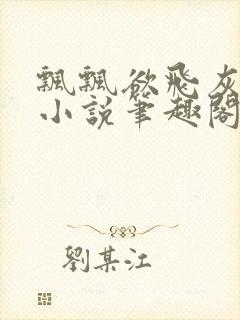 飄飄欲飛灰
小說筆趣閣
劉某江